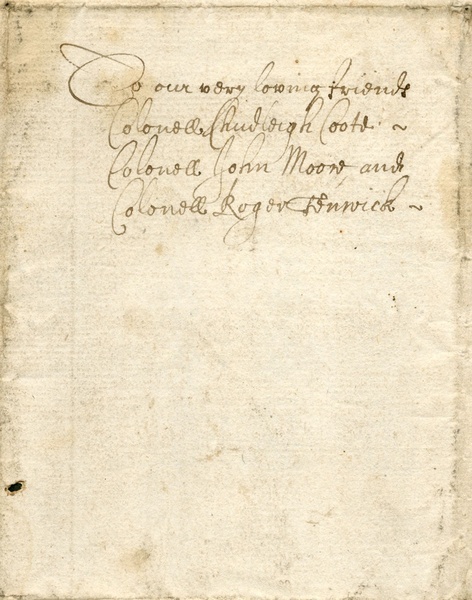 To our very loving friends
Colonell Chudleigh Coote ~
Colonell John Moore and
Colonell Roger Fenwick ~